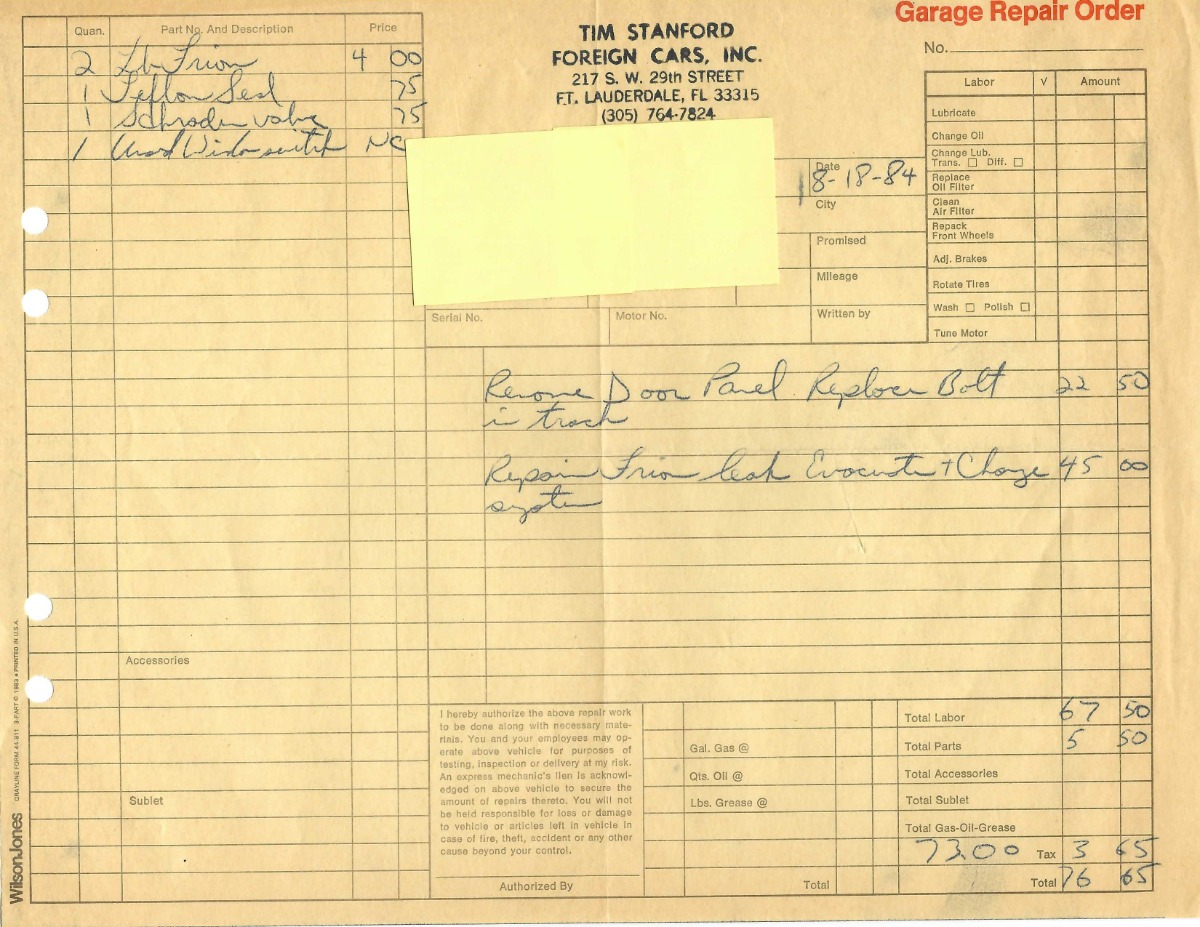 Garage Repair Order
No.
TIM STANFORD
FOREIGN CARS, INC.
217 S. W. 29th STREET
FT. LAUDERDALE, FL 33315
(305) 764-7824
Quan. Part No. And Description Price
2 Lb Frion 4 00
1 Teflon Seal 75
1 Schroder valve 75
1 Used Window switch NC
Accessories
Sublet
Date
8-18-84
City
Promised
Mileage
Serial No. Motor No. Written by
Labor V Amount
Lubricate
Change Oil
Change Lub.
Trans. ☐ Diff. ☐
Replace
Oil Filter
Clean
Air Filter
Repack
Front Wheels
Adj. Brakes
Rotate Tires
Wash ☐ Polish ☐
Tune Motor
Remove Door Panel Replace Bolt 22 50
in track
Repair Frion leak Evacuate + Charge 45 00
system
I hereby authorize the above repair work
to be done along with necessary mate-
rials. You and your employees may op-
erate above vehicle for purposes of
testing, inspection or delivery at my risk.
An express mechanic's lien is acknowl-
edged on above vehicle to secure the
amount of repairs thereto. You will not
be held responsible for loss or damage
to vehicle or articles left in vehicle in
case of fire, theft, accident or any other
cause beyond your control.
Authorized By
Gal. Gas @
Qts. Oil @
Lbs. Grease @
Total
Total Labor 67 50
Total Parts 5 50
Total Accessories
Total Sublet
Total Gas-Oil-Grease
73.00 Tax 3 65
Total 76 65
WilsonJones GRAYLINE FORM 44-911 3-PART © 1983 • PRINTED IN U.S.A.